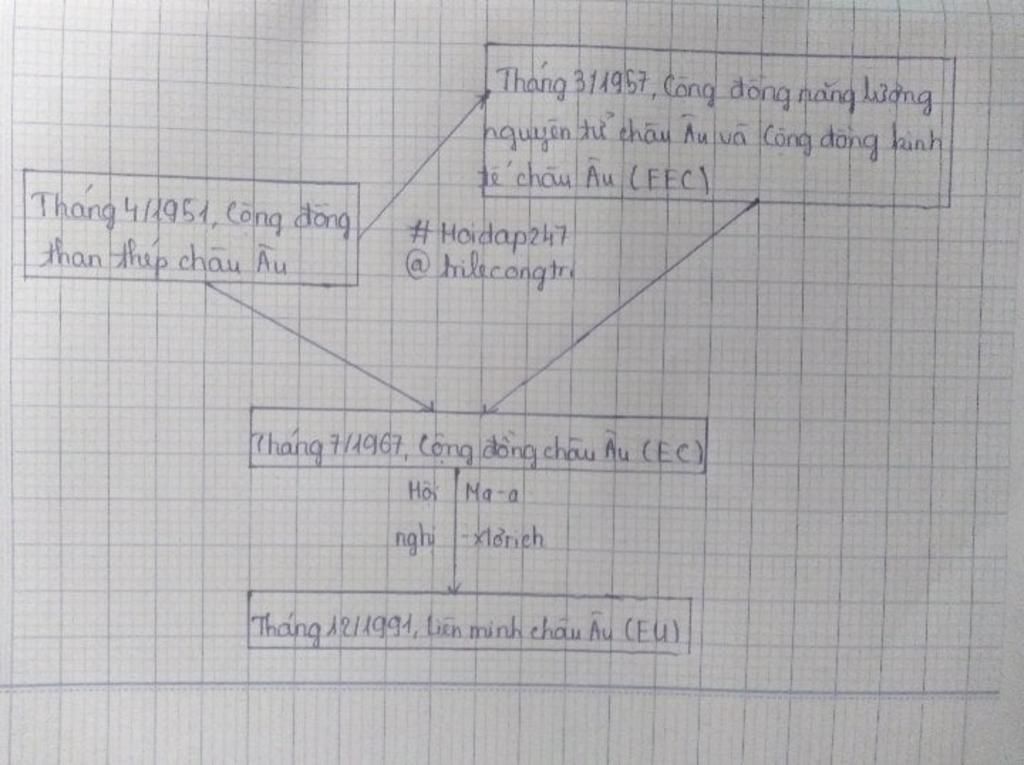 Tháng 3/1957, Cộng đồng năng lượng
nguyên tử châu Âu và Cộng đồng kinh
tế châu Âu (EEC)
Tháng 4/1951, Cộng đồng
than thép châu Âu
#Hoidap247
@trilecongtri
Tháng 7/1967, Cộng đồng châu Âu (EC)
Hội Ma-a
nghị -xtơrich
Tháng 12/1991, Liên minh châu Âu (EU)